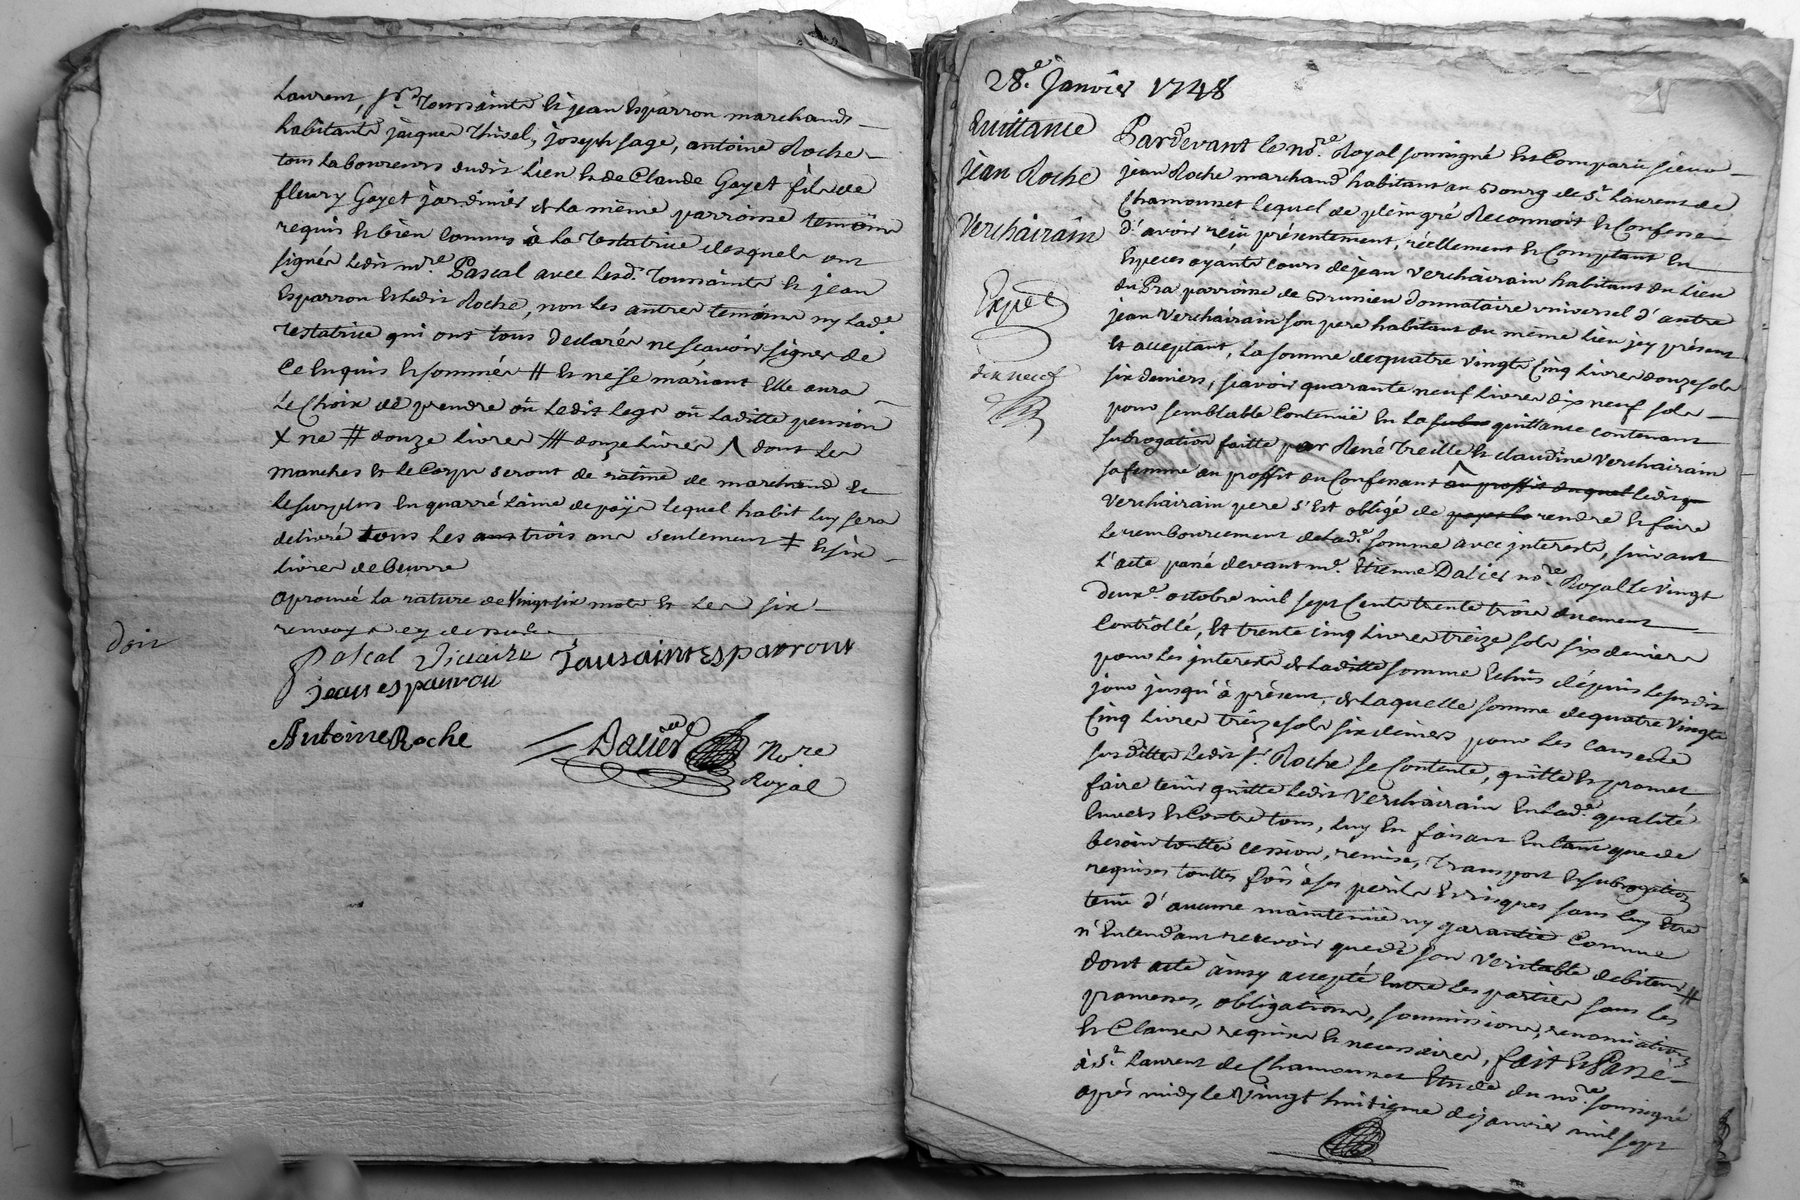 Laurent, sr. Toussaints et jean Esparron marchands
habitants jacques Thivel, joseph sage, antoine Roche
tous Laboureurs dudit Lieu et de Claude Gayet fils de
fleury Gayet jardinier de La même parroisse temoins
requis et bien Connus à La Testatrice desquels ont
signés Ledit mre. Pascal avec Lesd. Toussaints et jean
Esparron et Ledit Roche, non Les autres temoins ny Lade.
Testatrice qui ont tous Declarés ne sçavoir signer de
Ce Enquis et sommés # et ne se mariant Elle aura
Le Choix de prendre où Ledit Legs où Laditte pension
X ne # douze Livres # douze Livres ∧ dont Les
manches et le Corps seront de ratine de marchand et
Le surplus En quarré Laine de païs Lequel habit Luy sera
delivré tous Les trois ans seulement ‡ et six
Livres de Beurre
aprouvé La rature de Vingt six mots et Les six
renvoys cy dessus
Doit
Pascal Vicaire Tousaint Esparron
jean esparron
Antoine Roche Dalier Nore
Royal
28e. Janvier 1748
Quittance
jean Roche
Verchairain
Expéé
dix neuf
Pardevant le nore. Royal soussigné Est Comparu sieur
jean Roche marchand habitant au Bourg de St. Laurent de
Chamousset Lequel de plein gré Reconnoit et Confesse
d'avoir reçu présentement, réellement et Comptant En
Especes ayants cours de jean Verchairain habitant du Lieu
du Pra parroisse de Brussieu donnataire universel d'autre
jean Verchairain son pere habitant du même Lieu jcy présent
et acceptant, La somme de quatre vingts Cinq Livres douze sols
six deniers, sçavoir quarante neuf Livres dix neuf sols
pour semblable Contenüe En La quittance contenant
subrogation faitte par René Treille et claudine Verchairain
sa femme au proffit du Confessant ∧ au proffit duquel Ledit
Verchairain pere s'Est obligé de rendre et faire
Le remboursement de Lade. somme avec interests, suivant
L'acte passé devant me. Etienne Dalier nore. Royal Le Vingt
deuxe. octobre mil sept Cents trente trois duement
Contrôllé, Et trente Cinq Livres treize sols six deniers
pour Les interests de Laditte somme Echus depuis Le susdit
jour jusqu'à présent, de Laquelle somme de quatre Vingts
Cinq Livres treize sols six deniers pour Les causes cte
sus dittes Ledit sr. Roche se Contente, quitte et promet
faire tenir quitte Ledit Verchairain En Lade. qualité
Envers et Contre tous, Luy En faisant En tant que de
besoin touttes cession, remise, Transport et subrogation
requises touttes fois à ses perils et risques sans Luy Etre
tenu d'aucune maintenüe ny garantie Comme
n'Entendant recevoir que de son Veritable debiteur #
dont acte ainsy accepté Entre Les parties sous Les
promesses, obligations, soumissions, renonciations
et Clauses requises et necessaires, fait et Passé
à St. Laurent de Chamousset Etude du nore. soussigné
après midy le Vingt huitieme de janvier mil sept